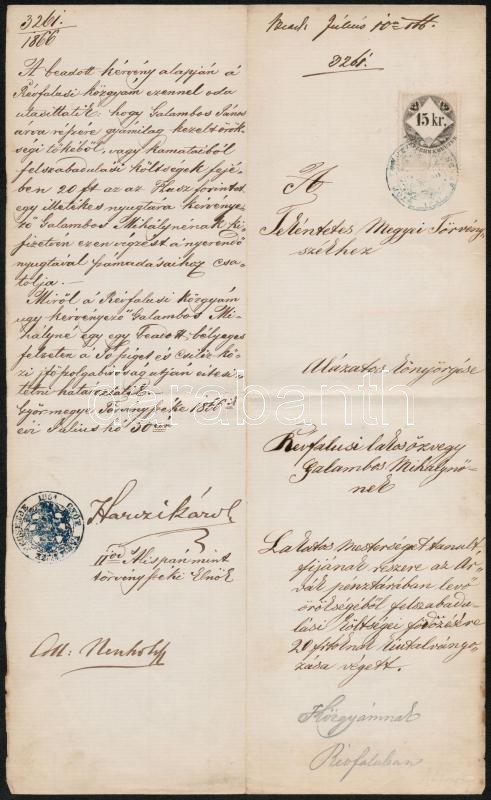 3261.
1866
A beadott kérvény alapján a
Révfalusi közgyám ezennel oda
utasittatik hogy Galambos János
árva részére gyámilag kezelt örök-
ségi tőkéből, vagy kamataiból
felszabadulási költségek fejé-
ben 20 ft az az Husz forintot
egy illetékes nyugtára kérvénye-
ző Galambos Mihálynénak ki-
fizetvén ezen végzést a nyerendő
nyugtával számadásaihoz csa-
tolja.
Miről a Révfalusi közgyám
ugy kérvényező Galambos Mi-
hályné egy egy bélyeges
felzeten a Sziget és Csiliz kö-
zi főszolgabiróság utján érte-
sitetni határoztatik.
Győrmegye Törvényszéke 1866ik
évi Julius hó 30án
Karol
IIod Alispán mint
törvényszéki Elnök
Július 10én
3261.
15 kr.
A
Tekéntetes Megyei Törvény-
székhez
Alázatos könyörgése
Révfalusi lakos özvegy
Galambos Mihálynő-
nek
Lakatos mesterséget tanult
fijának részére az Ár-
vák pénztárában levő
örökségéből felszabadu-
lási költségei födözésére
20 frtoknak kiutalványo-
zása végett.
Közgyámnak
Révfaluban
darabanth